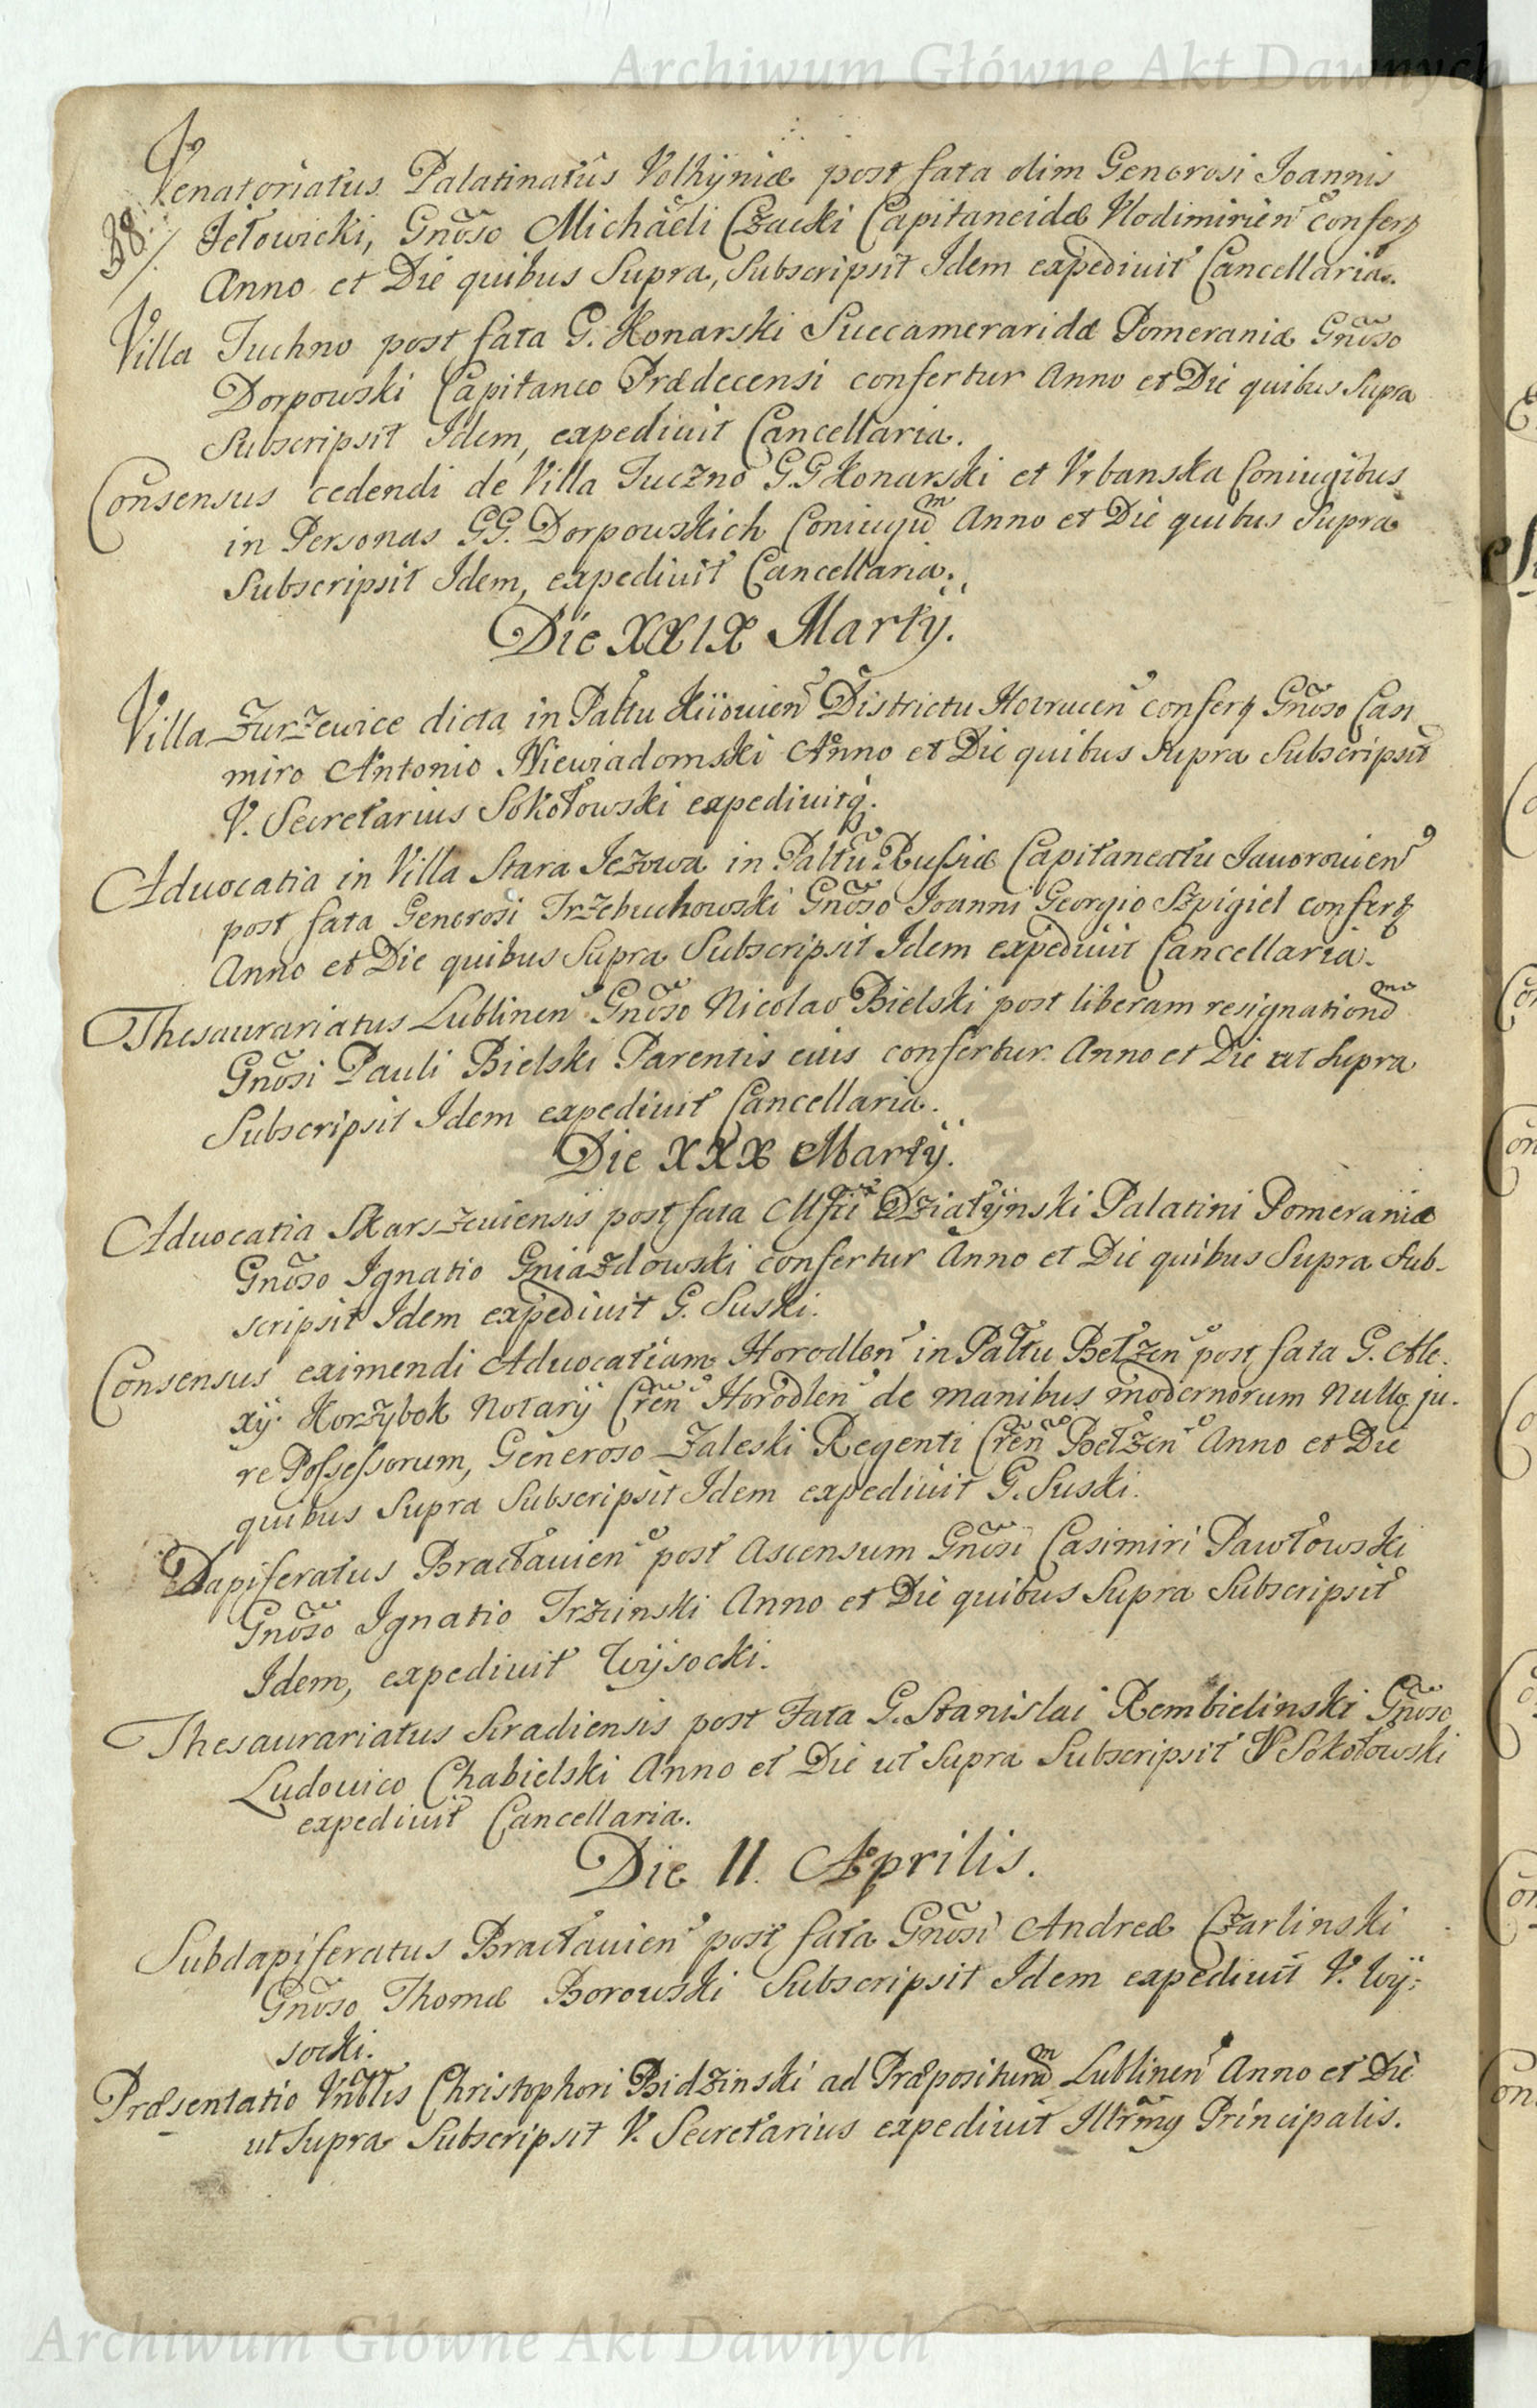 Archiwum Główne Akt Dawnych
Venatoriatus Palatinatûs Volhÿniæ post fata olim Generosi Ioannis
38. Jełowicki, Gnõso Michaëli Czacki Capitaneidæ Vlodimirień conferƺ
Anno et Die quibus Supra, Subscripsit Idem expediuit Cancellaria.
Villa Tuchno post fata G. Konarski Succameraridæ Pomeraniæ Gnõso
Dorpowski Capitaneo Prædecensi confertur Anno et Die quibus Supra
Subscripsit Idem, expediuit Cancellaria.
Consensus cedendi de Villa Tuczno G.G Konarski et Vrbanska Coniugibus
in Personas GG. Dorpowskich Coniugũm Anno et Die quibus Supra
Subscripsit Idem, expediuit Cancellaria.
Die XXIX Martÿ.
Villa Zurzewice dicta in Pałtu Kiiouień Districtu Howrucen conferƺ Gnõso Casi
miro Antonio Niewiadomski Anno et Die quibus supra Subscripsit
V. Secretarius Sokołowski expediuitq́.
Aduocatia in Villa Stara Jezowa in Paltũ Russiæ Capitaneatu Iauorouień
post fata Generosi Trzebuchowski Gnõso Ioanni Georgio Szpigiel conferƺ
Anno et Die quibus Supra Subscripsit Idem expediuit Cancellaria.
Thesaurariatus Lublinen Gnõso Nicolao Bielski post liberam resignationẽm
Gnõsi Pauli Bielski Parentis eius confertur Anno et Die ut Supra
Subscripsit Idem expediuit Cancellaria.
Die XXX Martÿ.
Aduocatia Skarszeuiensis post fata Mfci Działÿnski Palatini Pomeraniæ
Gnõso Ignatio Gniazdowski confertur Anno et Die quibus Supra Sub-
scripsit Idem expediuit G. Suski.
Consensus eximendi Aduocatiam Horodlen in Pałtu Bełzen post fata G. Ale-
xÿ Korzybok Notarÿ Cren Horodlen de manibus modernorum nullo ju-
re Possessorum, Generoso Zaleski Regenti Cren Bełzen Anno et Die
quibus Supra Subscripsit Idem expediuit G. Suski.
Dapiferatus Bracłauień post Ascensum Gnõsi Casimiri Pawłowski
Gnõso Ignatio Trzcinski Anno et Die quibus Supra Subscripsit
Idem, expediuit Wÿsocki.
Thesaurariatus Siradiensis post Fata G. Stanislai Rembielinski Gnõso
Ludouico Chabielski Anno et Die ut Supra Subscripsit V Sokołowski
expediuit Cancellaria.
Die II. Aprilis.
Subdapiferatus Bracłauień post fata Gnõsi Andreæ Czarlinski
Gnõso Thomæ Borowski Subscripsit Idem expediuit V. Wÿ-
socki.
Præsentatio Vnblis Christophori Bidzinski ad Præpositurãm Lublinen Anno et Die
ut Supra Subscripsit V. Secretarius expediuit Illrmg Principalis.
Archiwum Główne Akt Dawnych